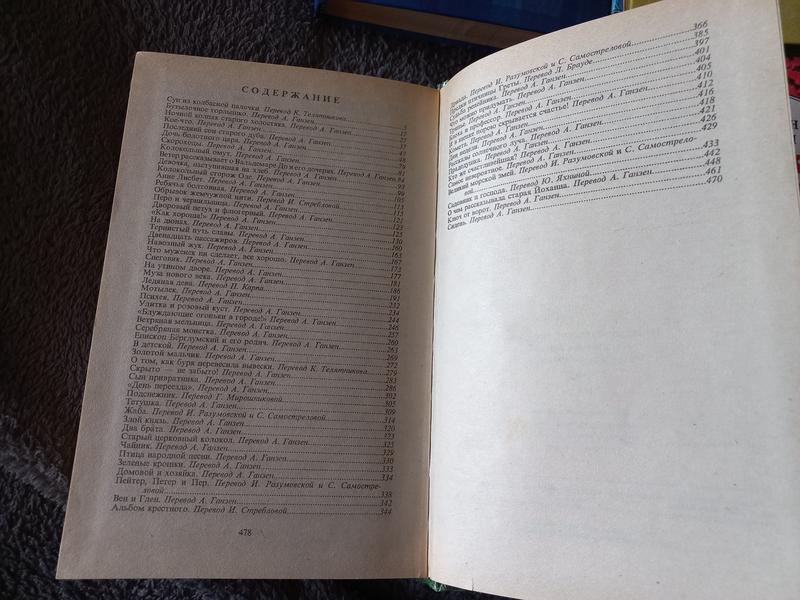 СОДЕРЖАНИЕ
Суп из колбасной палочки. Перевод К. Телятникова 3
Бутылочное горлышко. Перевод А. Ганзен
Ночной колпак старого холостяка. Перевод А. Ганзен
Кое-что. Перевод А. Ганзен
Последний сон старого дуба. Перевод А. Ганзен
Дочь болотного царя. Перевод А. Ганзен
Скороходы. Перевод А. Ганзен
Колокольный омут. Перевод А. Ганзен
Ветер рассказывает о Вальдемаре До и его дочерях. Перевод А. Ганзен. 84
Девочка, наступившая на хлеб. Перевод А. Ганзен
Колокольный сторож Оле. Перевод А. Ганзен
Анне Лисбет. Перевод А. Ганзен
Ребячья болтовня. Перевод А. Ганзен
Обрывок жемчужной нити. Перевод И. Стребловой
Перо и чернильница. Перевод А. Ганзен
Дворовый петух и флюгерный. Перевод А. Ганзен
«Как хороша!» Перевод А. Ганзен
На дюнах. Перевод А. Ганзен
Тернистый путь славы. Перевод А. Ганзен
Двенадцать пассажиров. Перевод А. Ганзен
Навозный жук. Перевод А. Ганзен
Что муженек ни сделает, все хорошо. Перевод А. Ганзен
Снеговик. Перевод А. Ганзен
На утином дворе. Перевод А. Ганзен
Муза нового века. Перевод А. Ганзен
Ледяная дева. Перевод П. Карпа
Мотылек. Перевод А. Ганзен
Психея. Перевод А. Ганзен
Улитка и розовый куст. Перевод А. Ганзен
«Блуждающие огоньки в городе!» Перевод А. Ганзен
Ветряная мельница. Перевод А. Ганзен
Серебряная монетка. Перевод А. Ганзен
Епископ Бёрглумский и его родич. Перевод А. Ганзен
В детской. Перевод А. Ганзен
Золотой мальчик. Перевод А. Ганзен
О том, как буря перевесила вывески. Перевод К. Телятникова
Скрыто — не забыто! Перевод А. Ганзен
Сын привратника. Перевод А. Ганзен
«День переезда». Перевод А. Ганзен
Подснежник. Перевод Г. Мирошниковой 302
Тетушка. Перевод А. Ганзен 305
Жаба. Перевод И. Разумовской и С. Самостреловой 309
Злой князь. Перевод А. Ганзен 314
Два брата. Перевод А. Ганзен 320
Старый церковный колокол. Перевод А. Ганзен 323
Чайник. Перевод А. Ганзен 325
Птица народной песни. Перевод А. Ганзен 329
Зеленые крошки. Перевод А. Ганзен 330
Домовой и хозяйка. Перевод А. Ганзен 333
Пейтер, Петер и Пер. Перевод И. Разумовской и С. Самостре-
ловой 338
Вен и Глен. Перевод А. Ганзен 342
Альбом крестного. Перевод И. Стребловой 344
478
Перевод И. Разумовской и С. Самостреловой 366
Предки птичницы Греты. Перевод Л. Брауде 385
Судьба репейника. Перевод А. Ганзен 397
Что можно придумать. Перевод А. Ганзен 401
Перевод А. Ганзен 404
Блоха и профессор. Перевод А. Ганзен 405
И в щепке порою скрывается счастье! Перевод А. Ганзен 410
Комета. Перевод А. Ганзен 412
Дни недели. Перевод А. Ганзен 416
Рассказы солнечного луча. Перевод А. Ганзен 418
Прадедушка. Перевод А. Ганзен 421
Кто же счастливейшая? Перевод А. Ганзен 426
Самое невероятное. Перевод А. Ганзен 429
Великий морской змей. Перевод И. Разумовской и С. Самострело-
вой 433
Садовник и господа. Перевод Ю. Яхниной 442
О чем рассказывала старая Йоханна. Перевод А. Ганзен 448
Ключ от ворот. Перевод А. Ганзен 461
Сидень. Перевод А. Ганзен 470